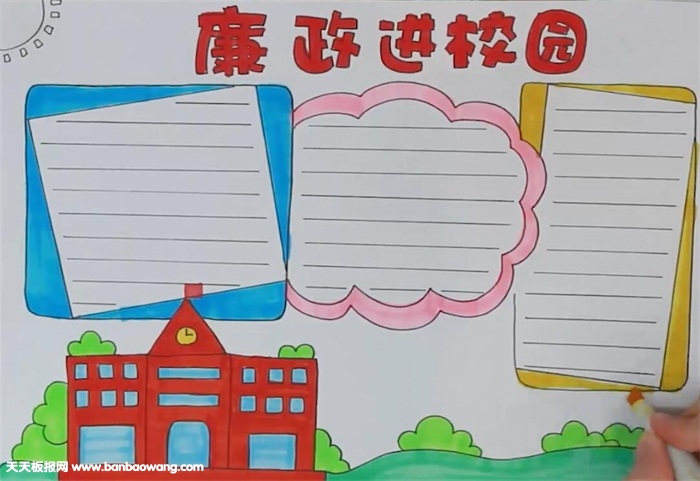 廉政进校园
天天板报网 www.banbaowang.com